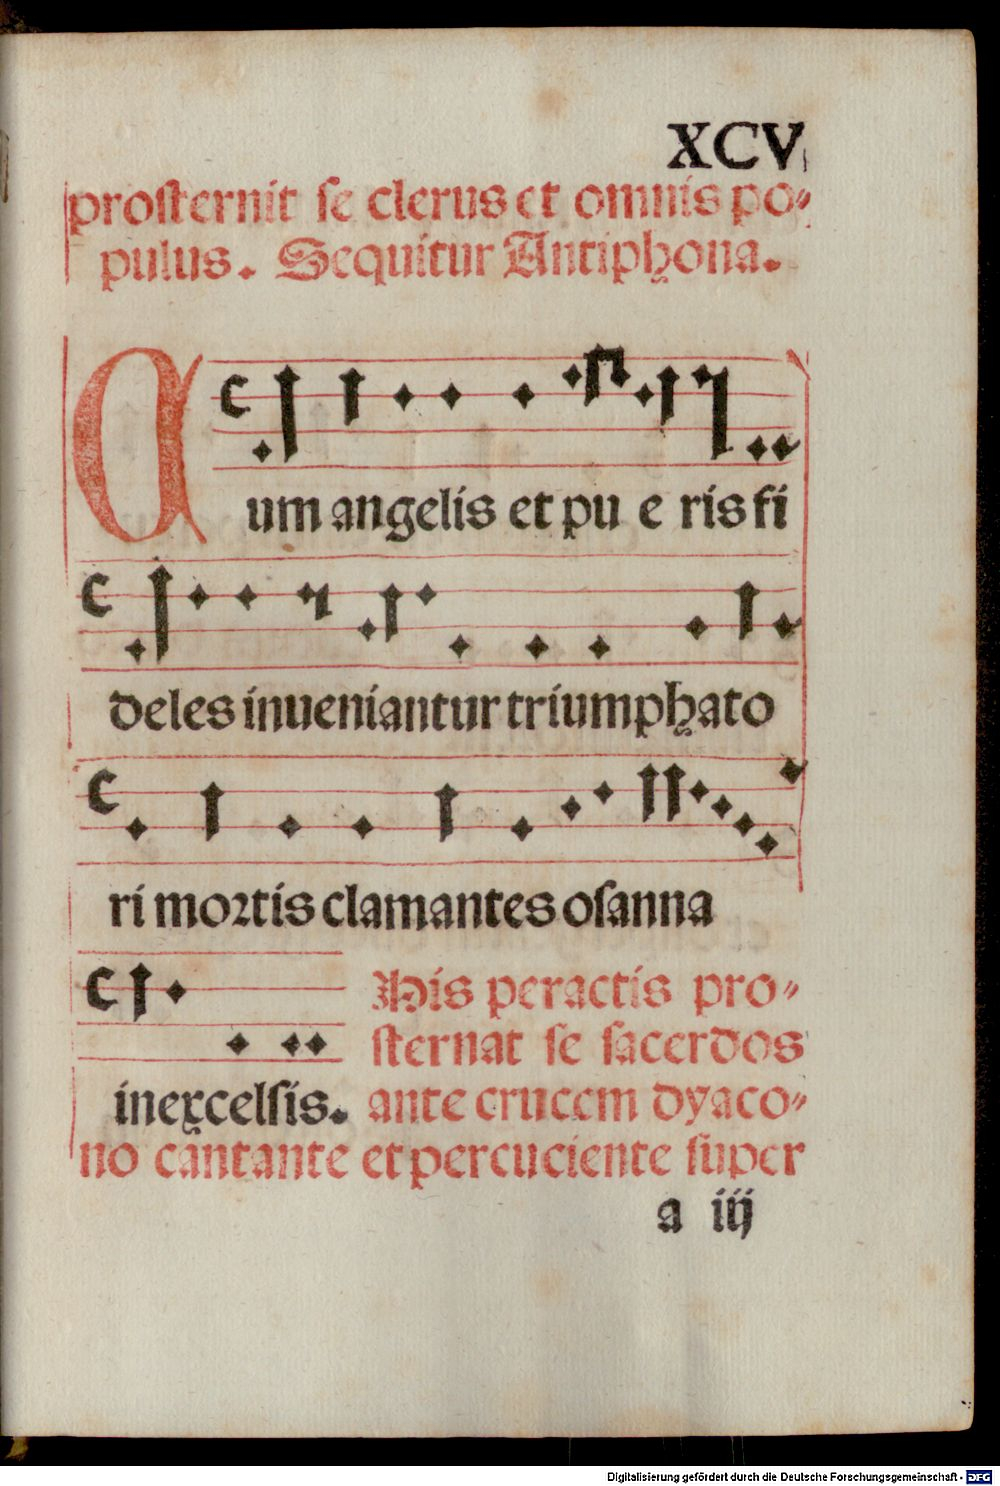 XCV
proſternit ſe clerus et omnis po⸗
pulus. Sequitur Antiphona.
Cum angelis et pu e ris fi
deles inueniantur triumphato
ri moꝛtis clamantes oſanna
in excelſis. His peractis pro⸗
ſternat ſe ſacerdos
ante crucem dyaco⸗
no cantante et percuciente ſuper
a iij
Digitalisierung gefördert durch die Deutsche Forschungsgemeinschaft - DFG